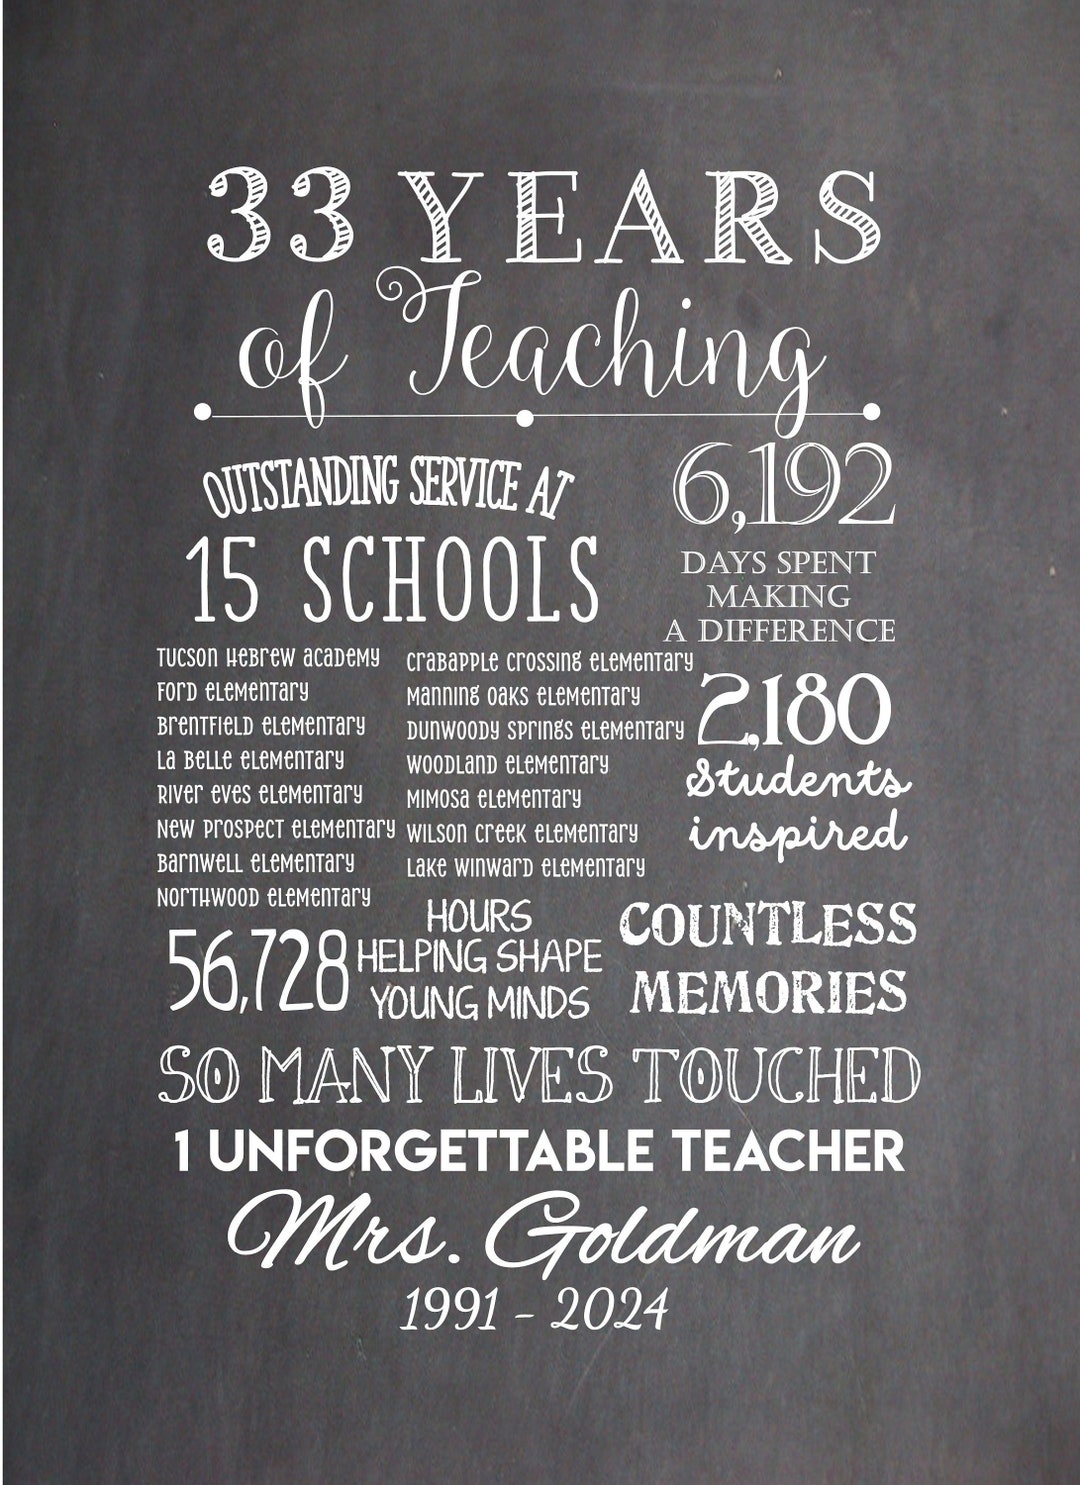 33 YEARS
of Teaching
OUTSTANDING SERVICE AT
15 SCHOOLS
TUCSON HEBREW ACADEMY
FORD ELEMENTARY
BRENTFIELD ELEMENTARY
LA BELLE ELEMENTARY
RIVER EVES ELEMENTARY
NEW PROSPECT ELEMENTARY
BARNWELL ELEMENTARY
NORTHWOOD ELEMENTARY
CRABAPPLE CROSSING ELEMENTARY
MANNING OAKS ELEMENTARY
DUNWOODY SPRINGS ELEMENTARY
WOODLAND ELEMENTARY
MIMOSA ELEMENTARY
WILSON CREEK ELEMENTARY
LAKE WINWARD ELEMENTARY
6,192
DAYS SPENT
MAKING
A DIFFERENCE
2,180
Students
inspired
56,728
HOURS
HELPING SHAPE
YOUNG MINDS
COUNTLESS
MEMORIES
SO MANY LIVES TOUCHED
1 UNFORGETTABLE TEACHER
Mrs. Goldman
1991 - 2024